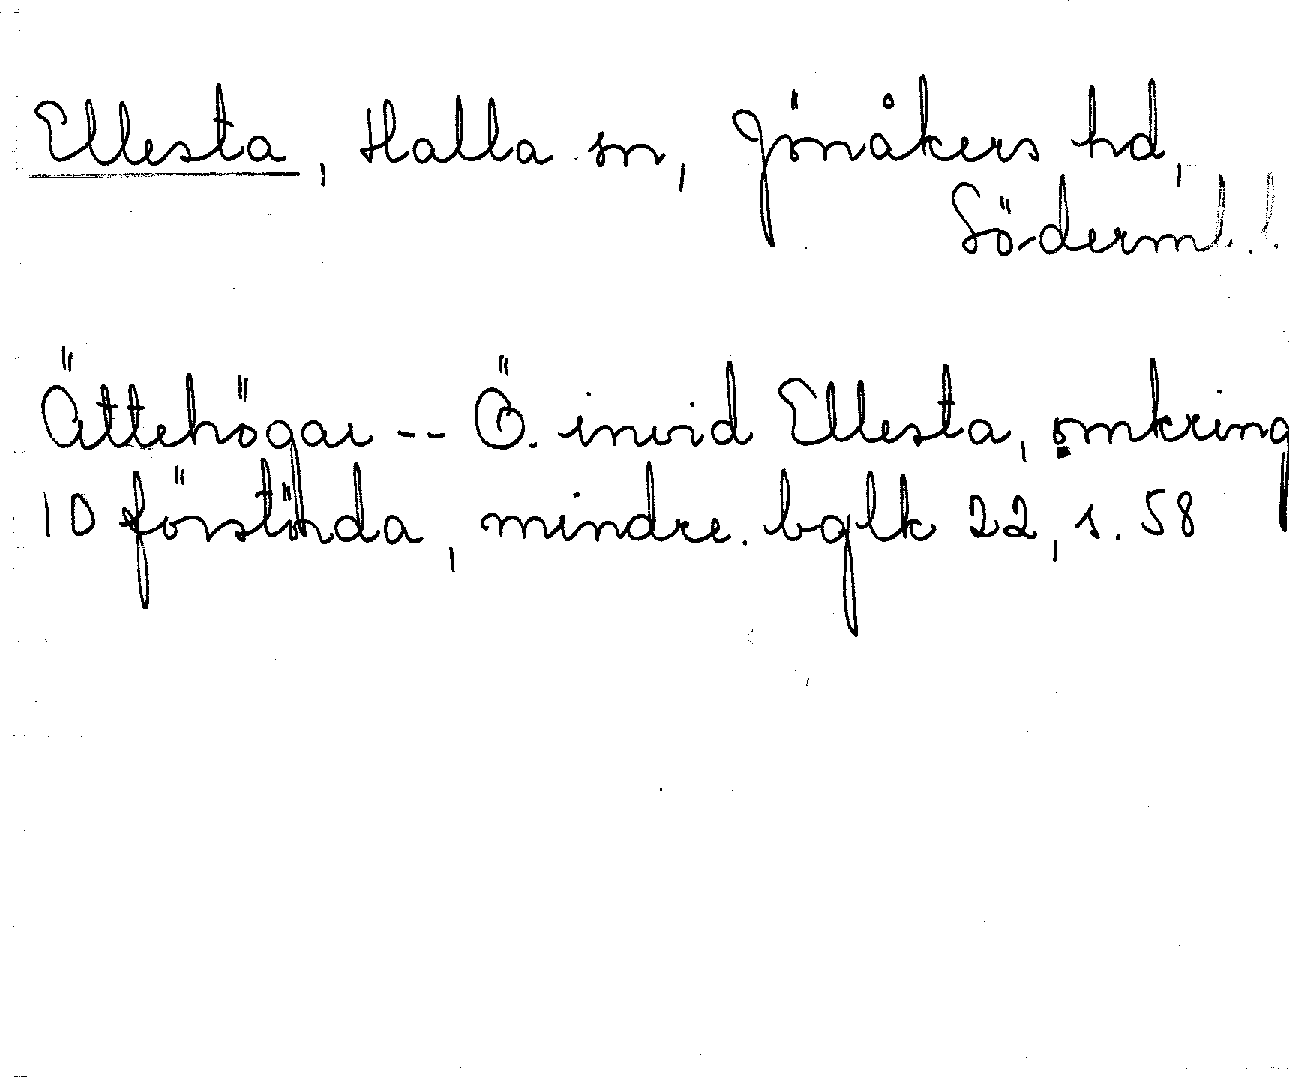 Ellesta, Halla sn, Jönåkers hd,
Söderml.
Ättehögar -- Ö. invid Ellesta, omkring
10 förstörda, mindre. bglk 22, s. 58